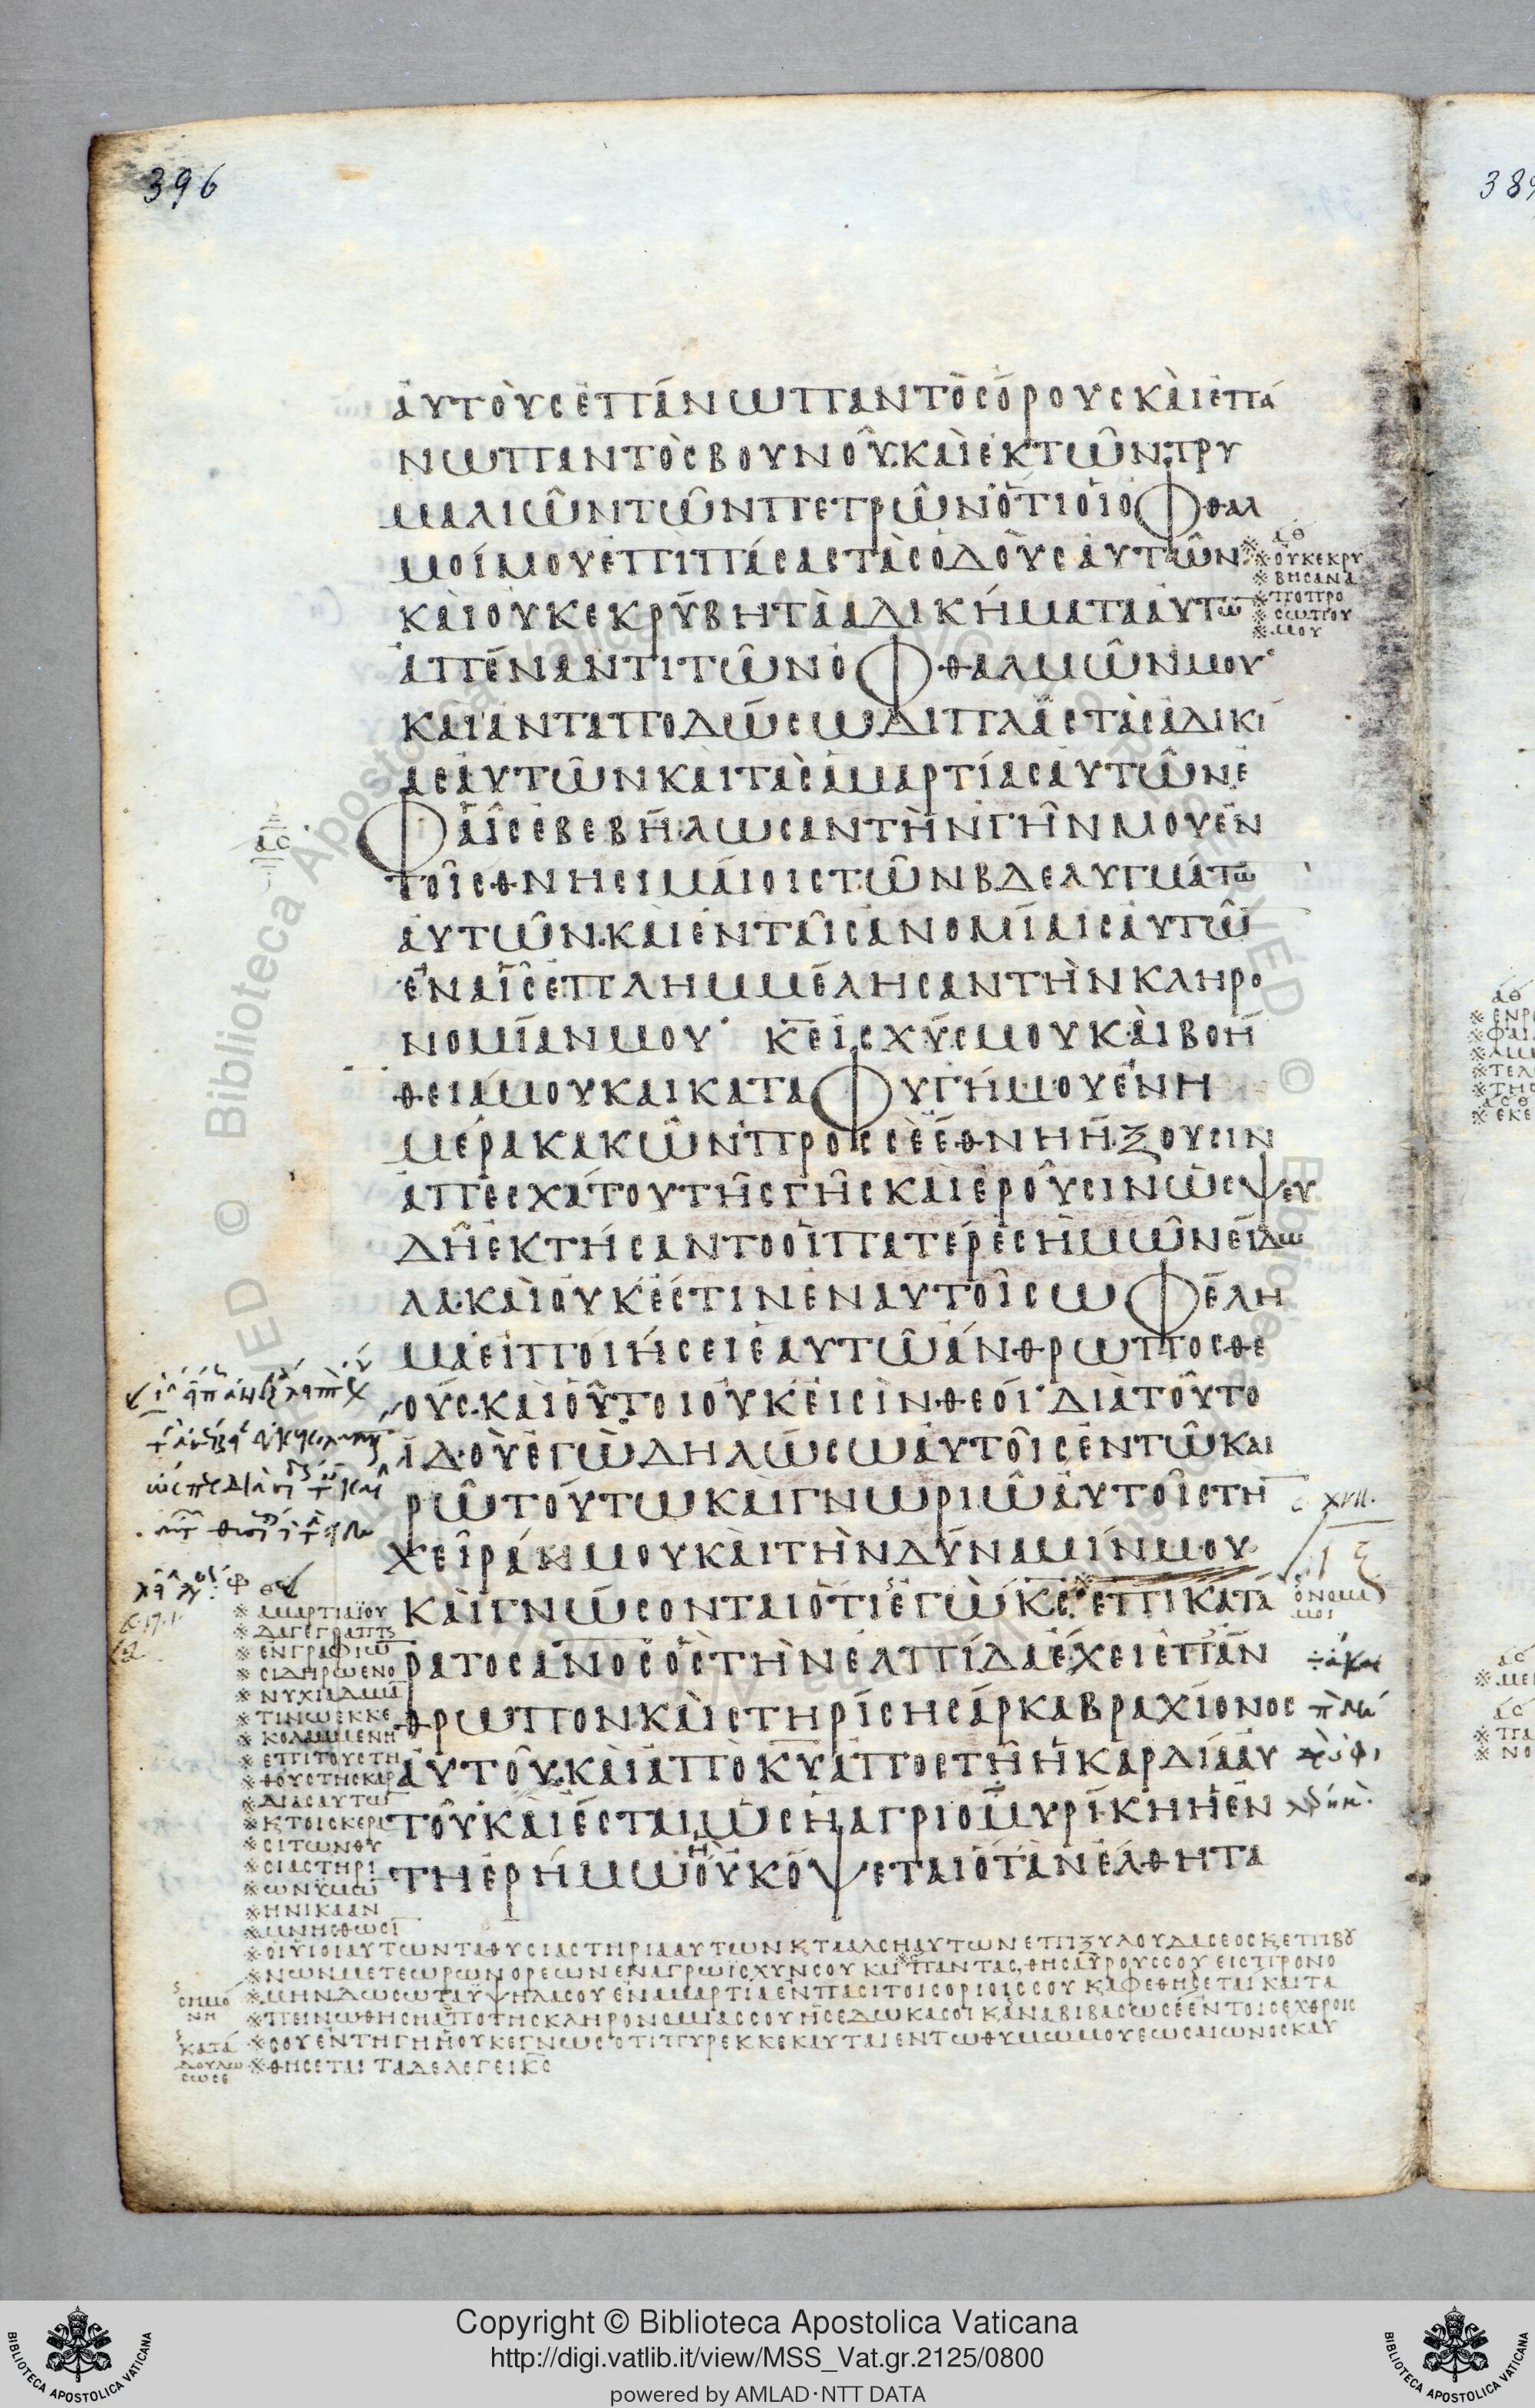 396
389
ἀυτοὺσἐπάνωπαντὸσὄρουσκὰιἐπά
νωπαντὸσβουνοῦ.κὰιἐκτῶν.τρυ
μαλιῶντῶνπετρῶν·ὅτιὁιὀφθαλ
μοίμουἐπὶπάσαστὰσὁδοὺσἀυτῶν·
κὰιὀυκεκρύβητὰἀδικήματαἀυτῶ
ἀπέναντιτῶνὀφθαλμῶνμου·
καὶἀνταποδώσωδιπλᾶστὰσἀδικί
ασἀυτῶνκὰιτὰσἁμαρτίασἀυτῶνἐ
φἇισἐβεβήλωσαντὴνγῆνμουἐν
τοῖσθνησιμάιοιστῶνβδελυγμάτω
ἀυτῶν.κὰιἐντᾶισἀνομίαισἀυτῶ
ἐνἇισἐπλημμέλησαντὴνκληρο
νομίανμου· κεἰσχύσμουκὰιβοή
θειάμουκαικαταφυγήμουἐνη
μέρακακῶν·πρὸσσὲἔθνηήξουσιν
ἀπἐσχάτουτῆσγῆσκὰιἐροῦσινὡσψευ
δῆἐκτήσαντοὁιπατέρεσἡμῶνεἴδω
λα.κὰιὀυκἔστινἐναυτοῖσωφέλη
μαἐιποιήσειἑαυτῶἄνθρωποσθε
ούσ.κὰιὁῦτοιὀυκἐισὶνθεοί·διὰτοῦτο
ἰδοὺἐγὼδηλώσωἀυτοῖσἐντῶκαι
ρῶτούτωκὰιγνωριῶἀυτοῖστὴ
χεῖράνμουκὰιτὴνδύναμίνμου
κὰιγνώσονταιὅτιἐγὼκσ·ἐπικατά
ρατοσἄνοσὃστὴνἐλπίδαἔχειἐπἄν
θρωπον.κὰιστηρίσησάρκαβραχίονοσ
ἀυτοῦ.κὰιἀπὸκυἀποστῆἡκαρδίαἀυ
τοῦκὰιἔσταιὡσἡἀγριομυρίκηἡἐν
τηἐρήμωὀυκόψεταιὅτανἔλθητα
αθ
※ ουκεκρυ
※ βησανα
※ ποπρο
※ σωπου
※ μου
ας
XVII.
ονομα
μοι
※ αμαρτιαϊου
※ δαγεγραπτ
※ ενγραφιω
※ σιδηρωενο
※ νυχιαδαμα
※ τινωεκκε
※ κολαμμενη
※ επιτουστη
※ θουστησκαρ
※ διασαυτω
※ κτοισκερα
※ σιτωνθυ
※ σιαστηρι
※ ωνϋμω
※ ηνικααν
※ μνησθωσι
※ οιυιοιαυτωνταθυσιαστηριααυτωνκτααλσηαυτωνεπιξυλουδασεοσκεπιβου
※ νωνμετεωρωνορεωνεναγρωϊσχυνσουκαιπαντασθησαυρουσσουεισπρονο
※ μηνδωσωταϋψηλασουεναμαρτιαενπασιτοισοριοισσουκαφεθησεταικαιτα
※ πεινωθησηαποτησκληρονομιασσουησεδωκασοικαναβιβασωσεεντοισεχθροισ
※ σουεντηγηηουκεγνωσοτιπυρεκκεκαυταιεντωθυμωμουεωσαιωνοσκαυ
※ θησεται ταδελεγεικσ
σημο
νη
κατα
δουλω
σωσε
Copyright © Biblioteca Apostolica Vaticana
http://digi.vatlib.it/view/MSS_Vat.gr.2125/0800
powered by AMLAD·NTT DATA
BIBLIOTECA APOSTOLICA VATICANA
BIBLIOTECA APOSTOLICA VATICANA